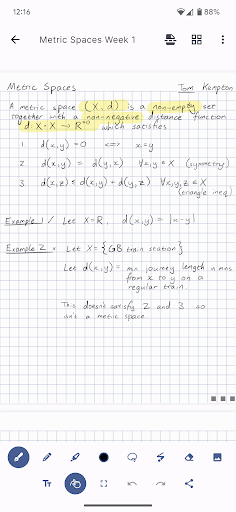 12:16 88%
Metric Spaces Week 1
Metric Spaces Tom Kempton
A metric space (X, d) is a non-empty set
together with a non-negative distance function
d: X × X → R≥0 which satisfies
1 d(x,y) = 0 <=> x=y
2 d(x,y) = d(y,x) ∀x,y ∈ X (symmetry)
3 d(x,z) ≤ d(x,y) + d(y,z) ∀x,y,z ∈ X
(triangle ineq)
Example 1 / Let X=R, d(x,y) = |x-y|
Example 2 Let X = {GB train station}
Let d(x,y) = min journey length in mins
from x to y on a
regular train.
This doesn't satisfy 2 and 3 so
isn't a metric space
TT